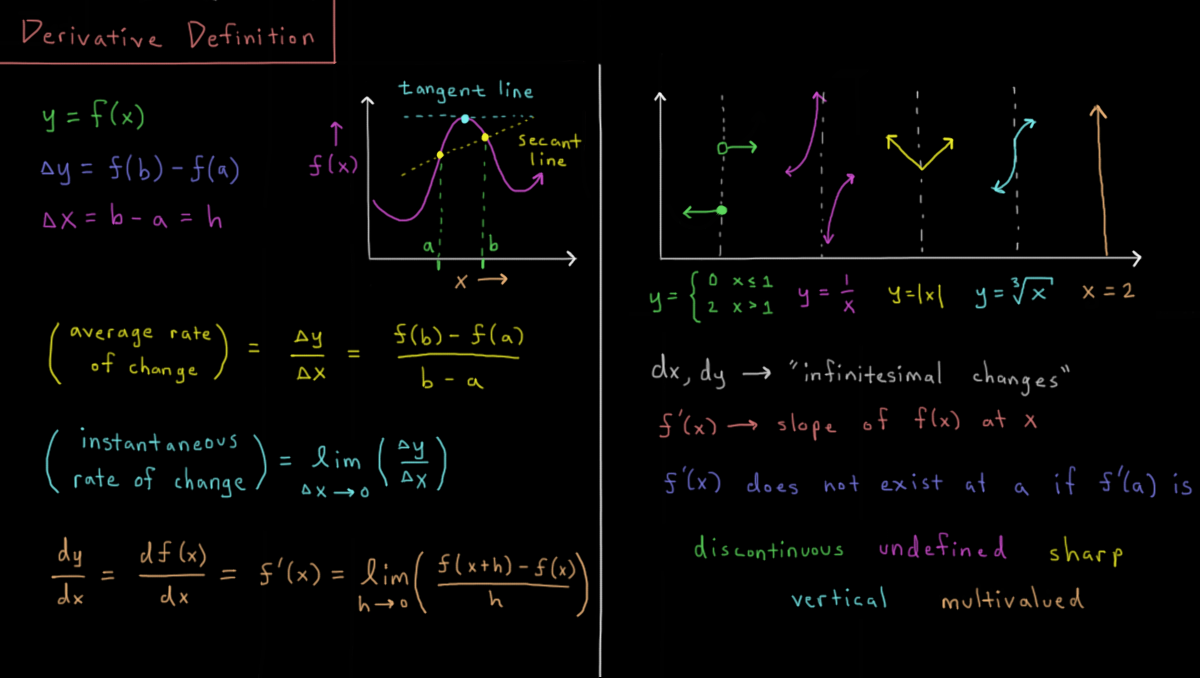 Derivative Definition
y = f(x)
Δy = f(b) - f(a)
Δx = b - a = h
tangent line
secant
line
f(x)
a
b
x →
(average rate of change) = Δy/Δx = (f(b) - f(a))/(b - a)
(instantaneous rate of change) = lim Δx→0 (Δy/Δx)
dy/dx = df(x)/dx = f'(x) = lim h→0 ((f(x+h) - f(x))/h)
y = { 0 x ≤ 1
2 x > 1
y = 1/x
y = |x|
y = ∛x
x = 2
dx, dy → "infinitesimal changes"
f'(x) → slope of f(x) at x
f'(x) does not exist at a if f'(a) is
discontinuous undefined sharp
vertical multivalued